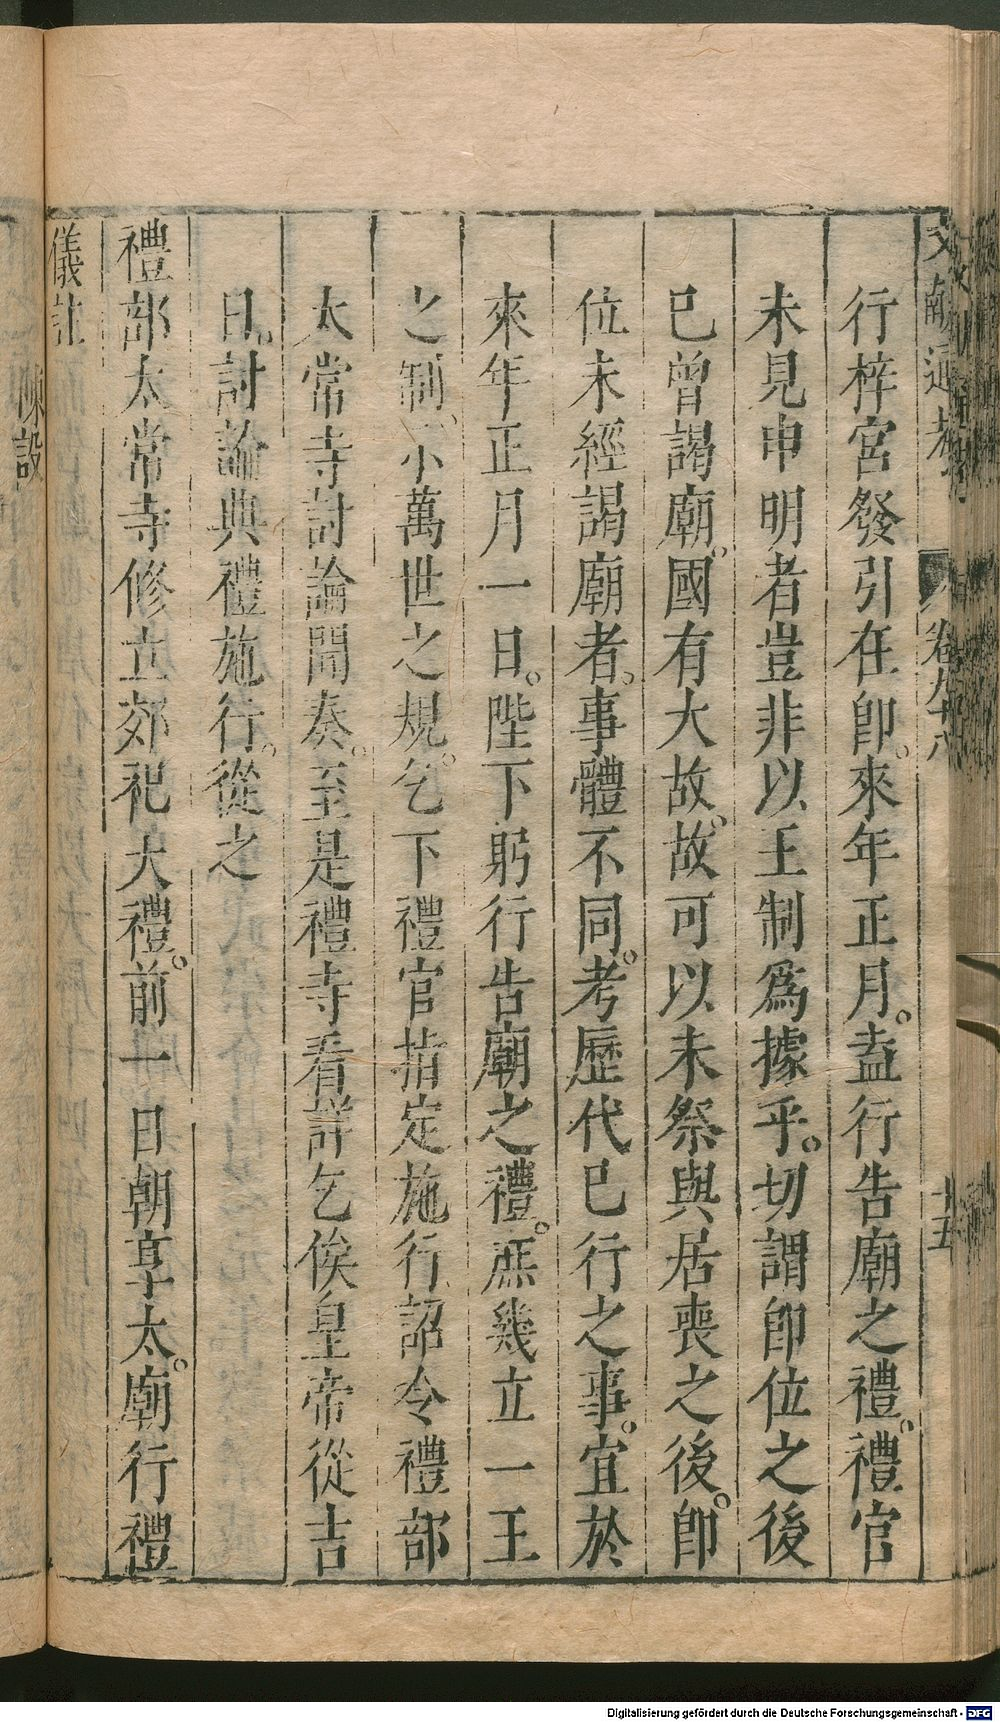 文獻通考 卷九十八 十五
行梓宮發引在卽來年正月。葢行告廟之禮。禮官
未見申明者豈非以王制爲據乎。切謂卽位之後
已曾謁廟。國有大故。故可以未祭與居喪之後。卽
位未經謁廟者。事體不同。考歷代已行之事。宜於
來年正月一日。陛下躬行告廟之禮。庶幾立一王
之制。示萬世之規。乞下禮官指定施行詔令禮部
太常寺討論聞奏。至是禮寺看詳乞俟皇帝從吉
日。討論典禮施行。從之
禮部太常寺修立郊祀大禮。前一日朝享太。廟行禮
儀註
陳設
Digitalisierung gefördert durch die Deutsche Forschungsgemeinschaft - DFG